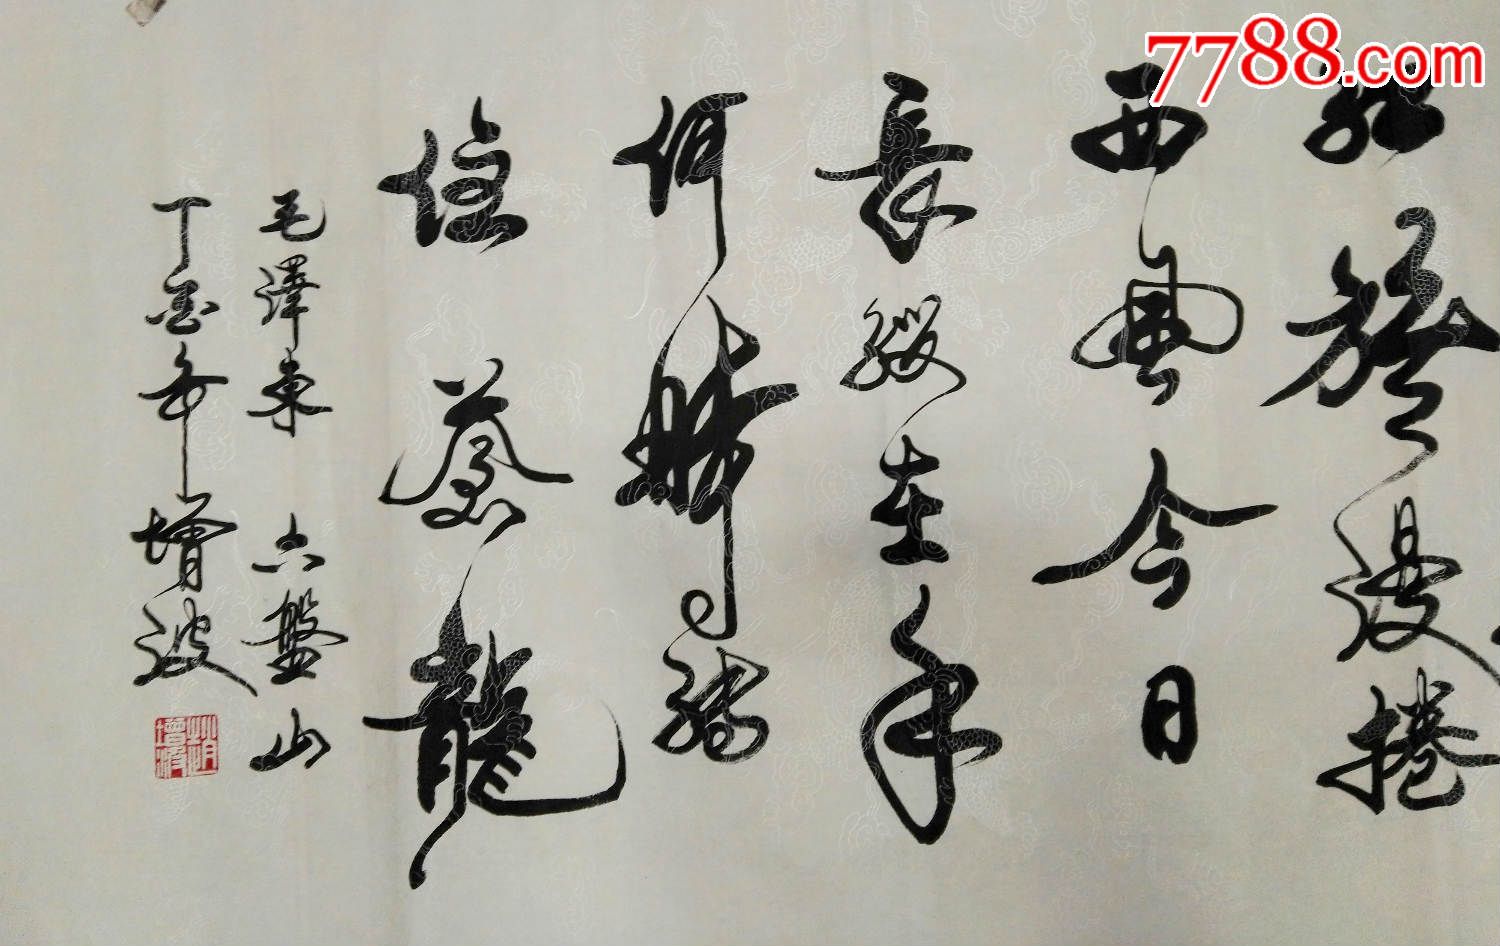 7788.com
紅旗漫捲
西風今日
長纓在手
何時縛
住蒼龍
毛澤東 六盤山
丁酉年增波